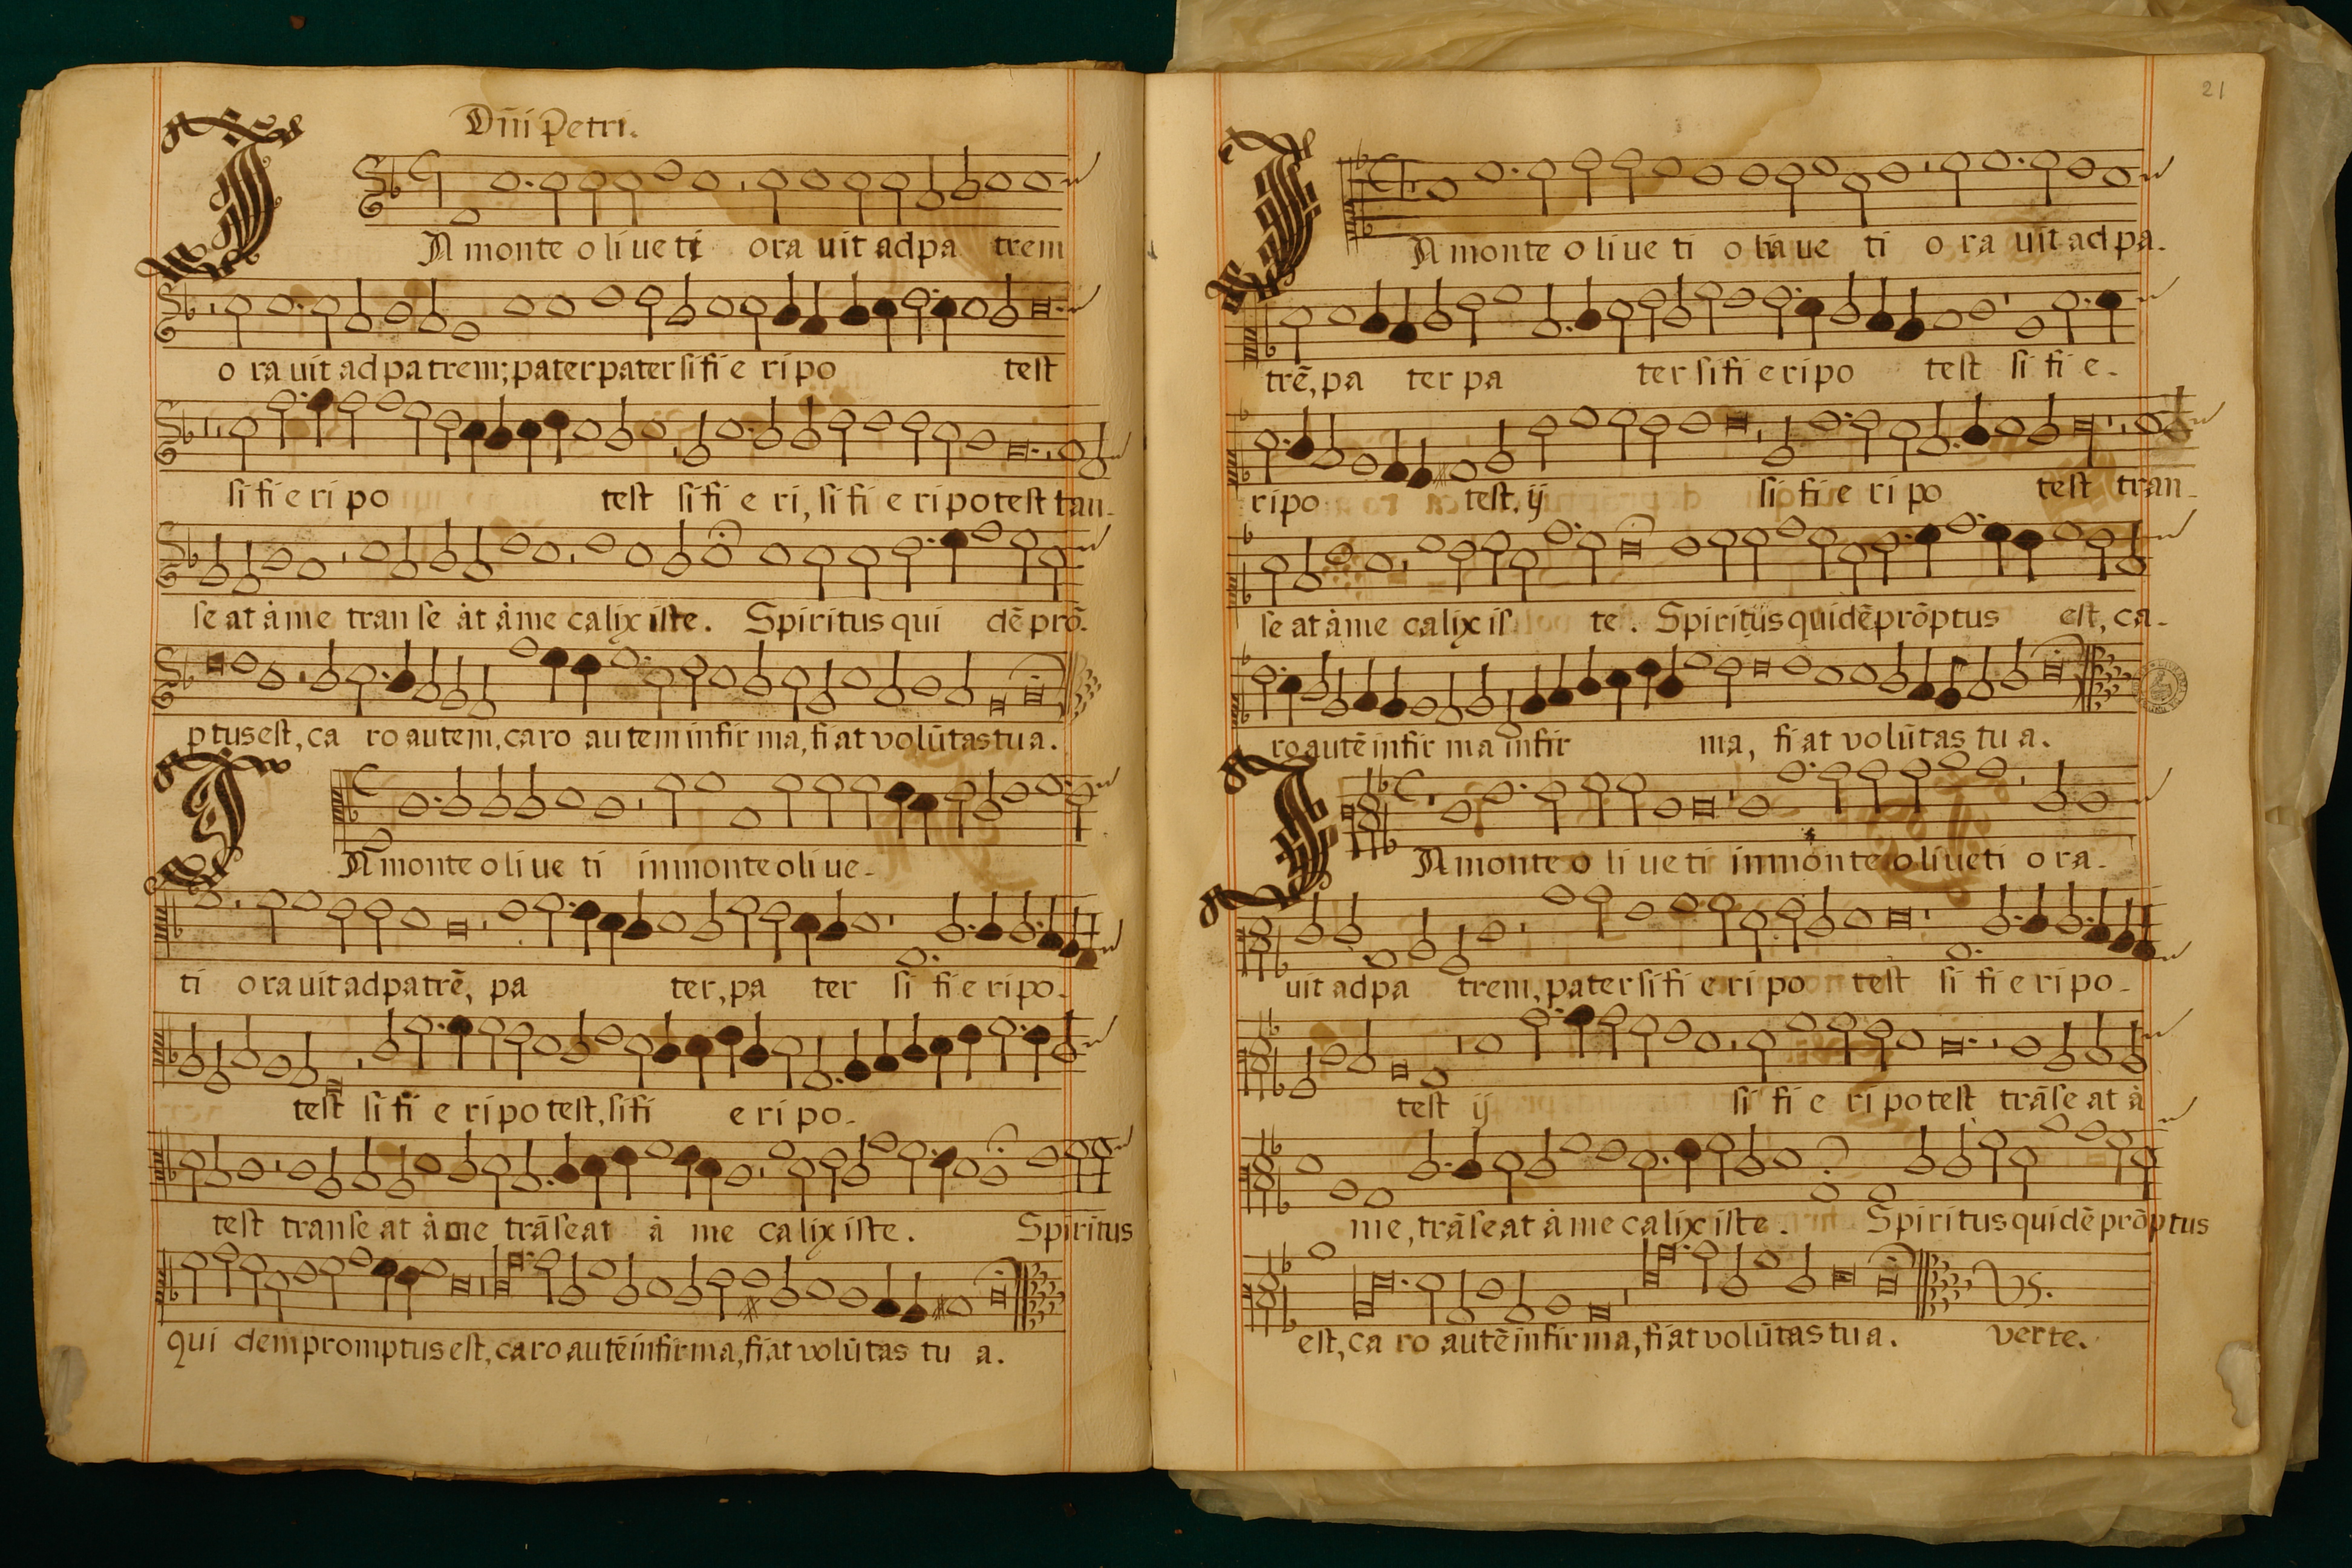 Dñi Petri.
IN monte o li ue ti ora uit ad pa trem
o ra uit ad pa trem; pater pater si fi e ri po test
si fi e ri po test si fi e ri, si fi e ri po test tan-
se at à me tran se àt à me calix iste. Spiritus qui dē prō-
ptus est, ca ro autem, caro autem infir ma, fiat volūtas tu a.
IN monte o li ue ti in monte oli ue-
ti o ra uit ad pa trē, pa ter, pa ter si fi e ri po-
test si fi e ri po test, si fi e ri po-
test transe at à me trāseat à me calix iste. Spiritus
qui dem promptus est, caro autē infirma, fiat volūtas tu a.
21
IN monte o li ue ti o lia ue ti o ra uit ad pa-
trē, pa ter pa ter si fi e ri po test si fi e-
ri po test, ij si fi e ri po test tran-
se at à me calix is te. Spiritus quidē prōptus est, ca-
ro autē infir ma infir ma, fiat volūtas tu a.
IN monte o li ue ti in monte oliueti o ra-
uit ad pa trem, pater si fi e ri po test si fi e ri po-
test ij si fi e ri po test trāse at à
me, trāseat à me calix iste. Spiritus quidē prōptus
est, ca ro autē infirma, fiat volūtas tu a. verte.
VS.